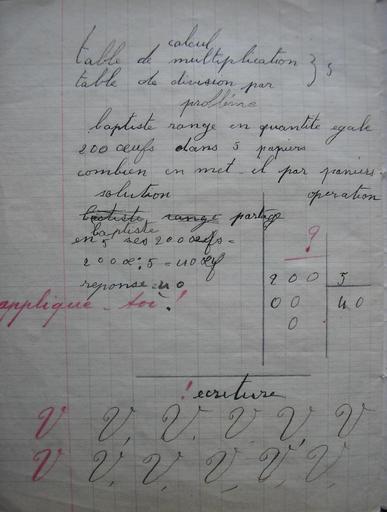 calcul
table de multiplication } 5
table de division par
problème
baptiste range en quantité egale
200 œufs dans 5 papiers
combien en met-il par paniers
solution operation
baptiste range partage
baptiste
en 5 ses 200 œufs =
200 œ : 5 = 40 œf
reponse = 40
applique-toi !
9
200 5
00 40
0
! ecriture
V V V V V V
V V V V V V